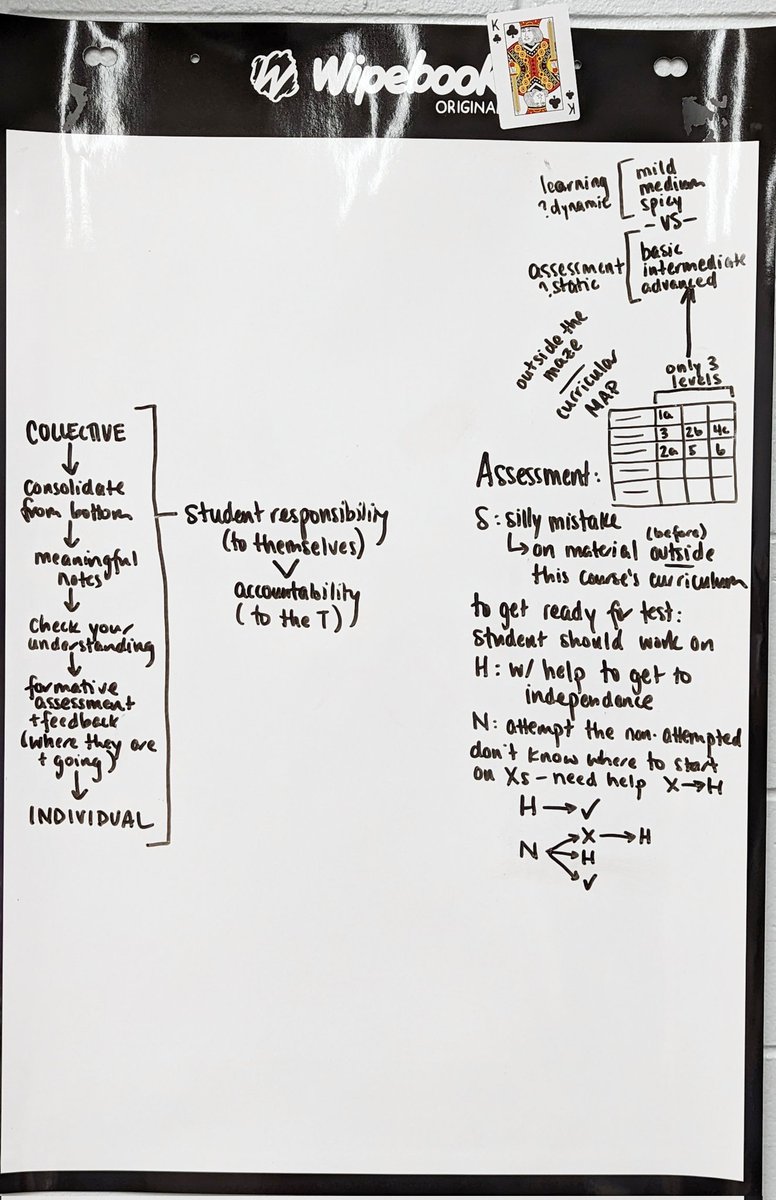 Wipebook
ORIGINAL
K
K
learning
?dynamic
mild
medium
spicy
-VS-
assessment
?static
basic
intermediate
advanced
outside the
maze
curricular
MAP
only 3
levels
1a
3 2b 4c
2a 5 6
COLLECTIVE
Consolidate
from bottom
meaningful
notes
check your
understanding
formative
assessment
+feedback
(where they are
+ going)
INDIVIDUAL
Student responsibility
(to themselves)
accountability
(to the T)
Assessment:
S: silly mistake
(before)
↳ on material outside
this course's curriculum
to get ready for test:
student should work on
H: w/ help to get to
independence
N: attempt the non-attempted
don't know where to start
on Xs - need help X→H
H → ✓
N X → H
H
✓